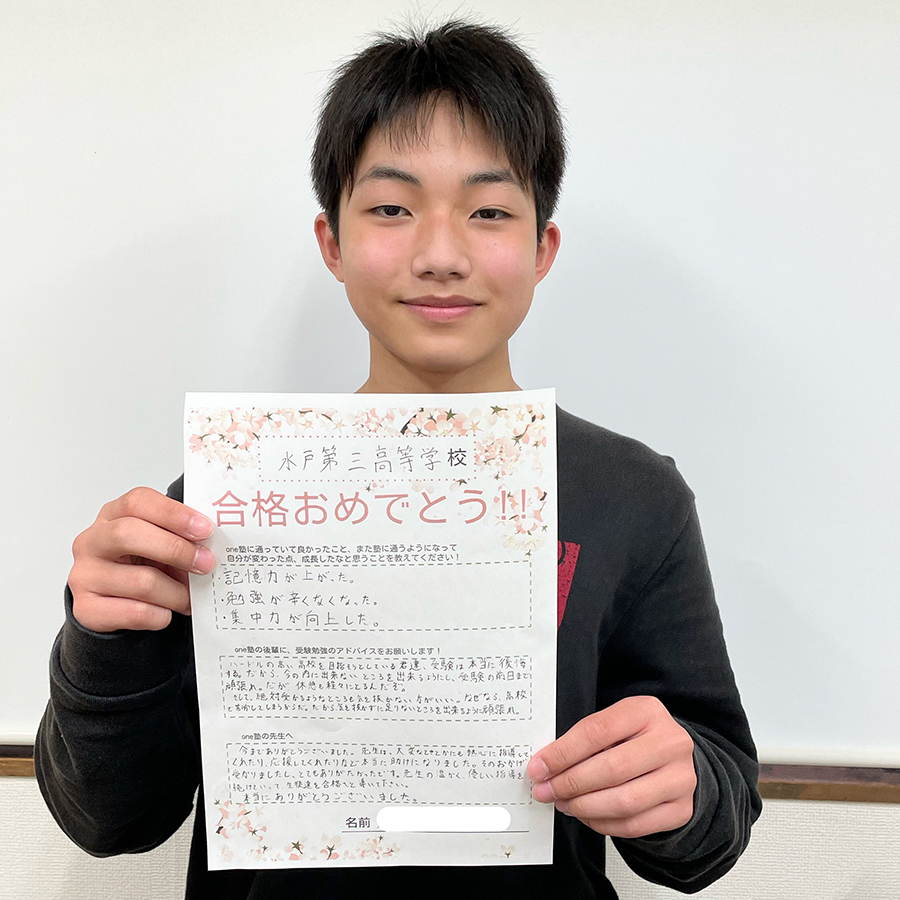 水戸第三高等学校
合格おめでとう!!
one塾に通っていて良かったこと、また塾に通うようになって
自分が変わった点、成長したなと思うことを教えてください!
・記憶力が上がった。
・勉強が辛くなくなった。
・集中力が向上した。
one塾の後輩に、受験勉強のアドバイスをお願いします!
ハードルの高い高校を目指そうとしている君達、受験は本当に後悔
する。だから、今の内に出来ないところを出来るようにし、受験の前日まで
頑張れ。だが休憩も軽々にとるんだぞ。
そして、絶対受かるようなところも気を抜かない方がいい。なぜなら、高校
してしまうからだ。だから気を抜かずに足りないところを出来るように頑張れ。
one塾の先生へ
今までありがとうございました。先生は、大変なときとかにも熱心に指導して
くれたり、応援してくれたりなど本当に助けになりました。そのおかげ
受かりましたし、とてもありがたかったです。先生の温かく、優しい指導を
続けていって生徒達を合格へと導いて下さい。
本当にありがとうございました。
名前